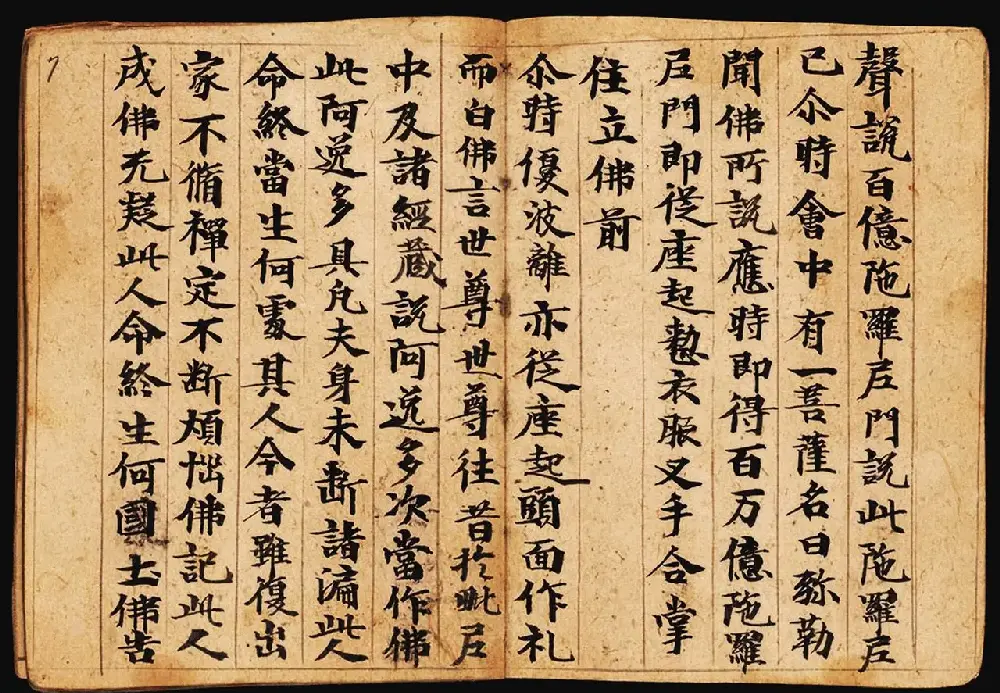 聲說百億陁羅𡰱門說此陁羅𡰱
已尒時會中有一菩薩名曰弥勒
聞佛所說應時即得百万億陁羅
𡰱門即從座起懃衣服叉手合掌
住立佛前
尒時優波離亦從座起頭面作礼
而白佛言世尊世尊往昔扵毗𡰱
中及諸經蔵說阿逸多次當作佛
此阿逸多具凡夫身未断諸漏此人
命終當生何處其人今者雖復出
家不脩禪定不断煩惱佛記此人
成佛无疑此人命終生何國土佛告